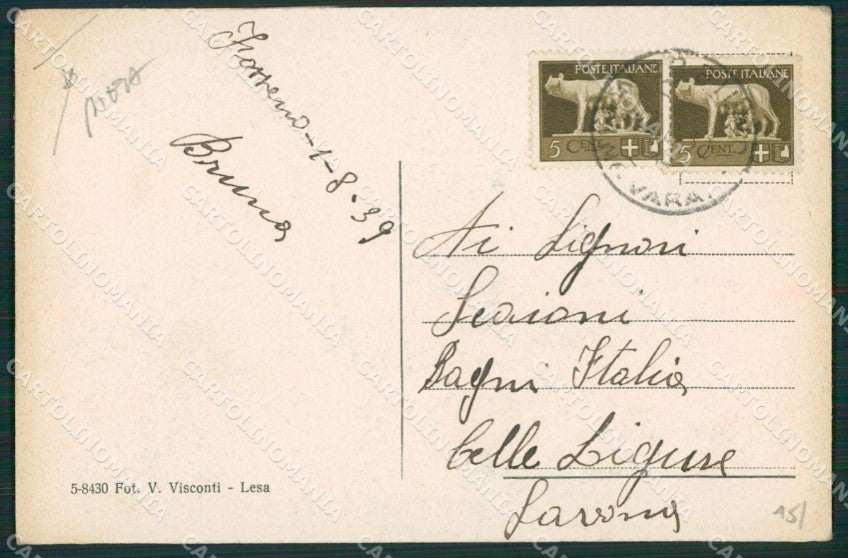 Bruna
1-8-39
POSTE ITALIANE
5 CENT.
POSTE ITALIANE
5 CENT.
VARA
Ai Signori
Bagni Italia
Celle Ligure
Savona
5-8430 Fot. V. Visconti - Lesa
15/
CARTOLINOMANIA